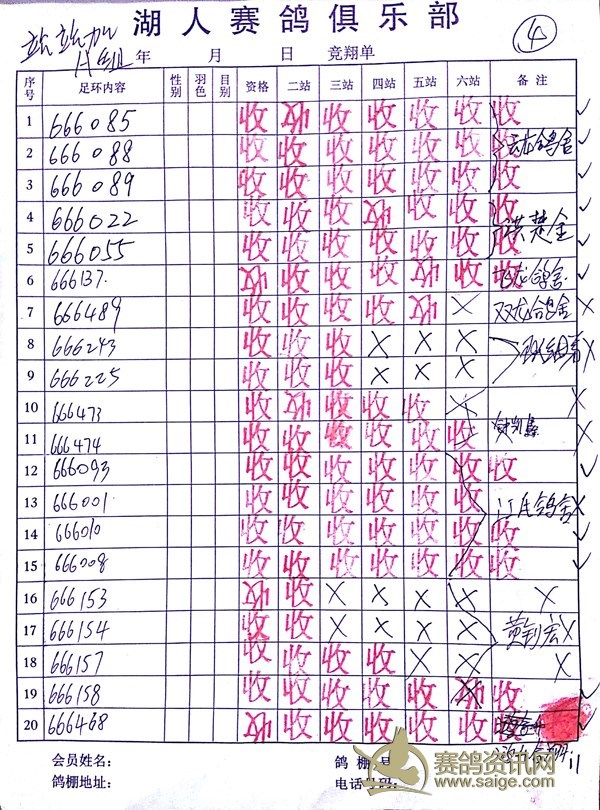 湖人赛鸽俱乐部
站站加
A组 年 月 日 竞翔单 4
序号 足环内容 性别 羽色 目别 资格 二站 三站 四站 五站 六站 备注
1 666085 收 收 收 收 收 收 收 ✓
2 666088 收 收 收 收 收 收 收 鸽舍 ✓
3 666089 收 收 收 收 收 收 收 ✓
4 666022 收 收 收 收 收 收 收 ✓
5 666055 收 收 收 收 收 收 收 洪楚金 ✓
6 666137. 收 收 收 收 收 收 收 龙鸽舍 ✓
7 666489 收 收 收 收 收 X 双龙鸽舍 X
8 666243 收 收 收 X X X X
9 666225 收 收 收 X X X X
10 666473 收 收 收 收 收 X X
11 666474 收 收 收 收 收 收 X
12 666093 收 收 收 收 收 收 收 ✓
13 666001 收 收 收 收 收 收 江氏鸽舍 X
14 666010 收 收 收 收 收 收 收 ✓
15 666008 收 收 收 收 收 收 收 ✓
16 666153 收 收 X X X X X
17 666154 收 收 X X X X 黄钊宏 X
18 666157 收 收 收 收 X X X
19 666158 收 收 收 收 收 收 ✓
20 666468 收 收 收 收 收 收 收 ✓
会员姓名: 鸽棚号
鸽棚地址: 电话号码:
赛鸽资讯网
www.saige.com